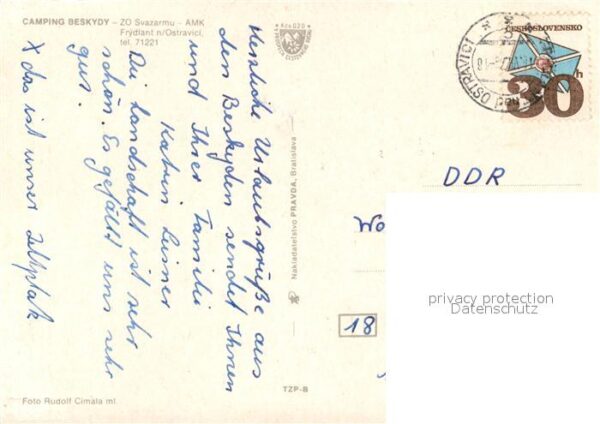 CAMPING BESKYDY – ZO Svazarmu – AMK
Frýdlant n/Ostravicí,
tel. 71221
Herzliche Urlaubsgrüße aus
den Beskyden sendet Ihnen
und Ihrer Familie
Katrin
Die Landschaft ist sehr
schön. Es gefällt uns sehr
gut.
X das ist unser Zeltplatz
Foto Rudolf Cimala ml.
Nakladateľstvo PRAVDA, Bratislava
TZP-B
ČESKOSLOVENSKO
30h
OSTRAVICÍ
DDR
Wo
18
privacy protection
Datenschutz